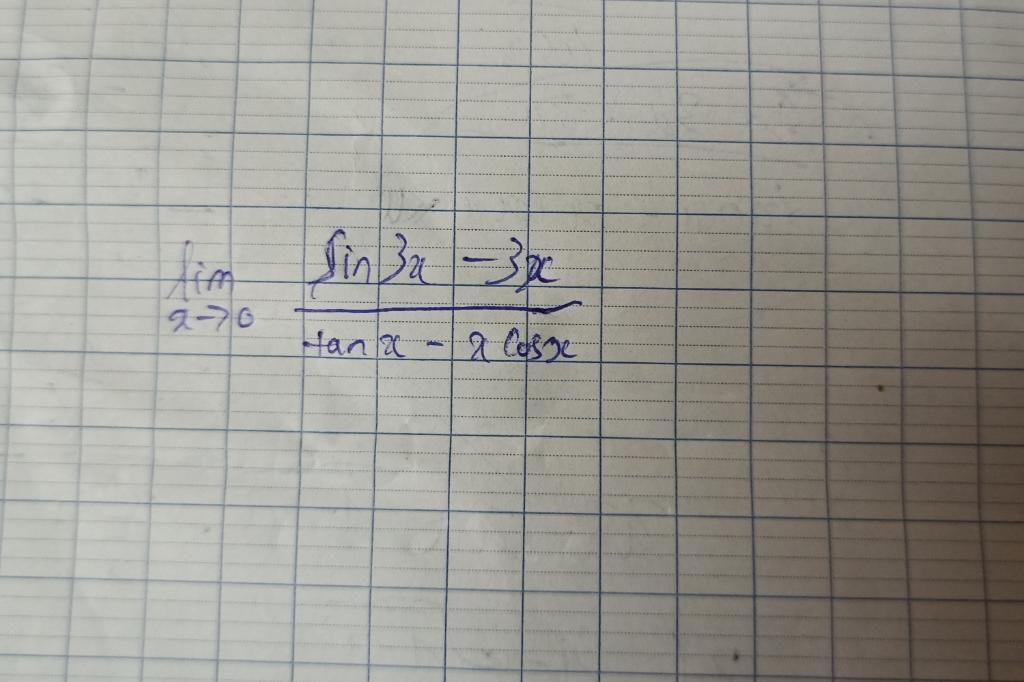 lim sin 3x - 3x
x→0 tan x - x cos x